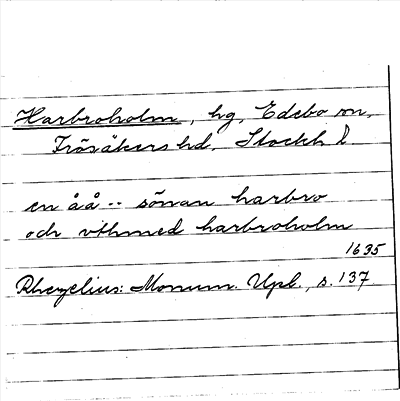 Harbroholm, hg, Edebo sn,
Frösåkers hd. Stockh l
en åå -- sönan harbro
och vthmed harbroholm
1635
Rhezelius: Monum. Upl., s. 137.